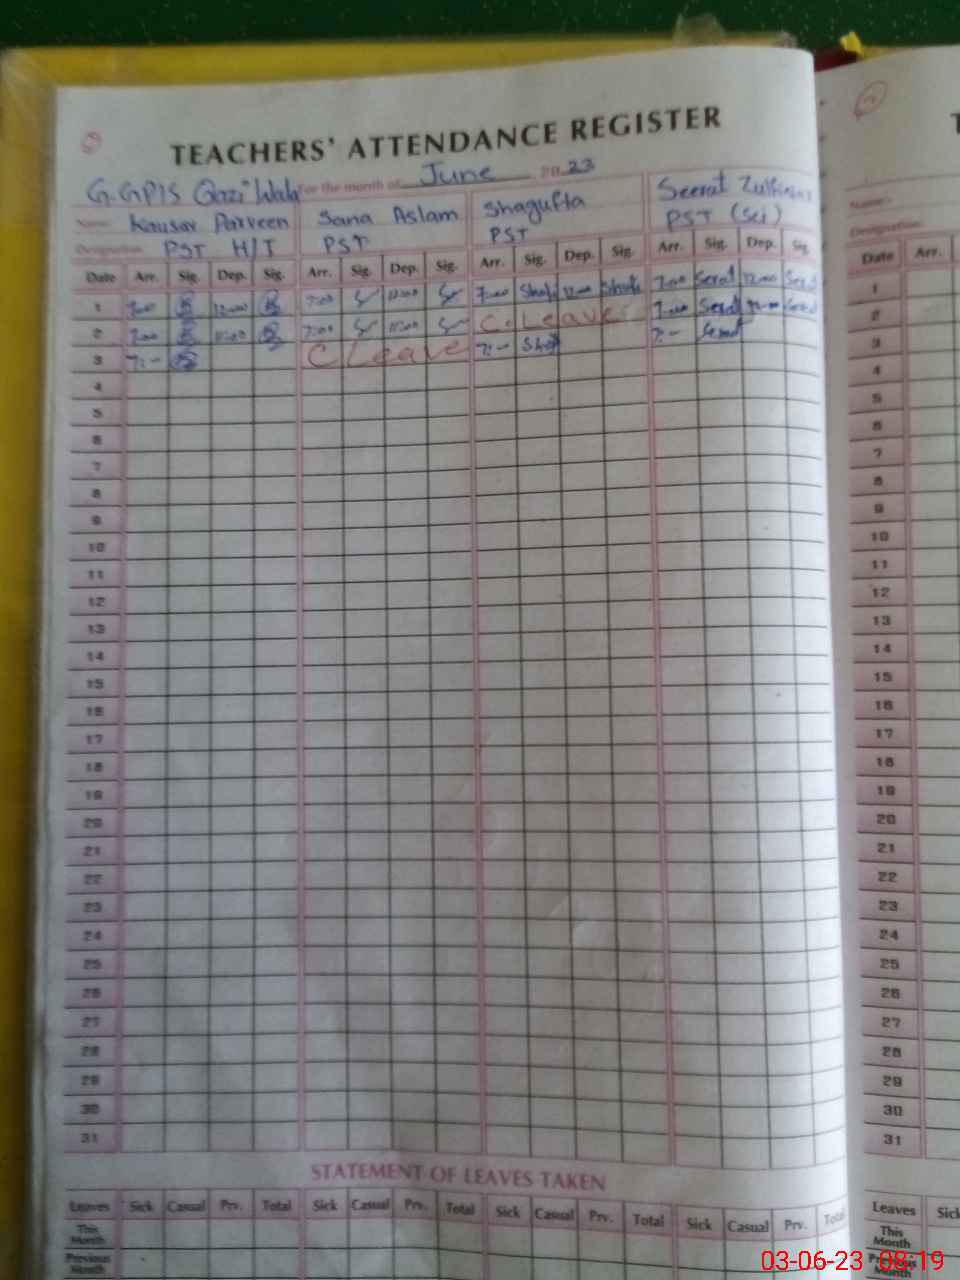 TEACHERS' ATTENDANCE REGISTER
G.GP/S Qazi Wala For the month of June 20.23
Name:- Kausar Parveen Sana Aslam Shagufta Seerat Zulfiqar Name:-
Designation PST H/T PST PST PST (Sci) Designation
Date Arr. Sig. Dep. Sig. Arr. Sig. Dep. Sig. Arr. Sig. Dep. Sig. Arr. Sig. Dep. Sig. Date Arr.
1 7:00 12:00 7:00 12:00 7:00 Shah 12:00 Shah 7:00 Serat 12:00 Serat 1
2 7:00 11:00 7:00 11:00 C. Leave 7:00 Serat Serat 2
3 7:- C Leave 7:- Sha 7:- Serat 3
4 4
5 5
6 6
7 7
8 8
9 9
10 10
11 11
12 12
13 13
14 14
15 15
16 16
17 17
18 18
19 19
20 20
21 21
22 22
23 23
24 24
25 25
26 26
27 27
28 28
29 29
30 30
31 31
STATEMENT OF LEAVES TAKEN
Leaves Sick Casual Prv. Total Sick Casual Prv. Total Sick Casual Prv. Total Sick Casual Prv. Total Leaves Sick
This Month This Month
Previous Month Previous Month
03-06-23 08:19